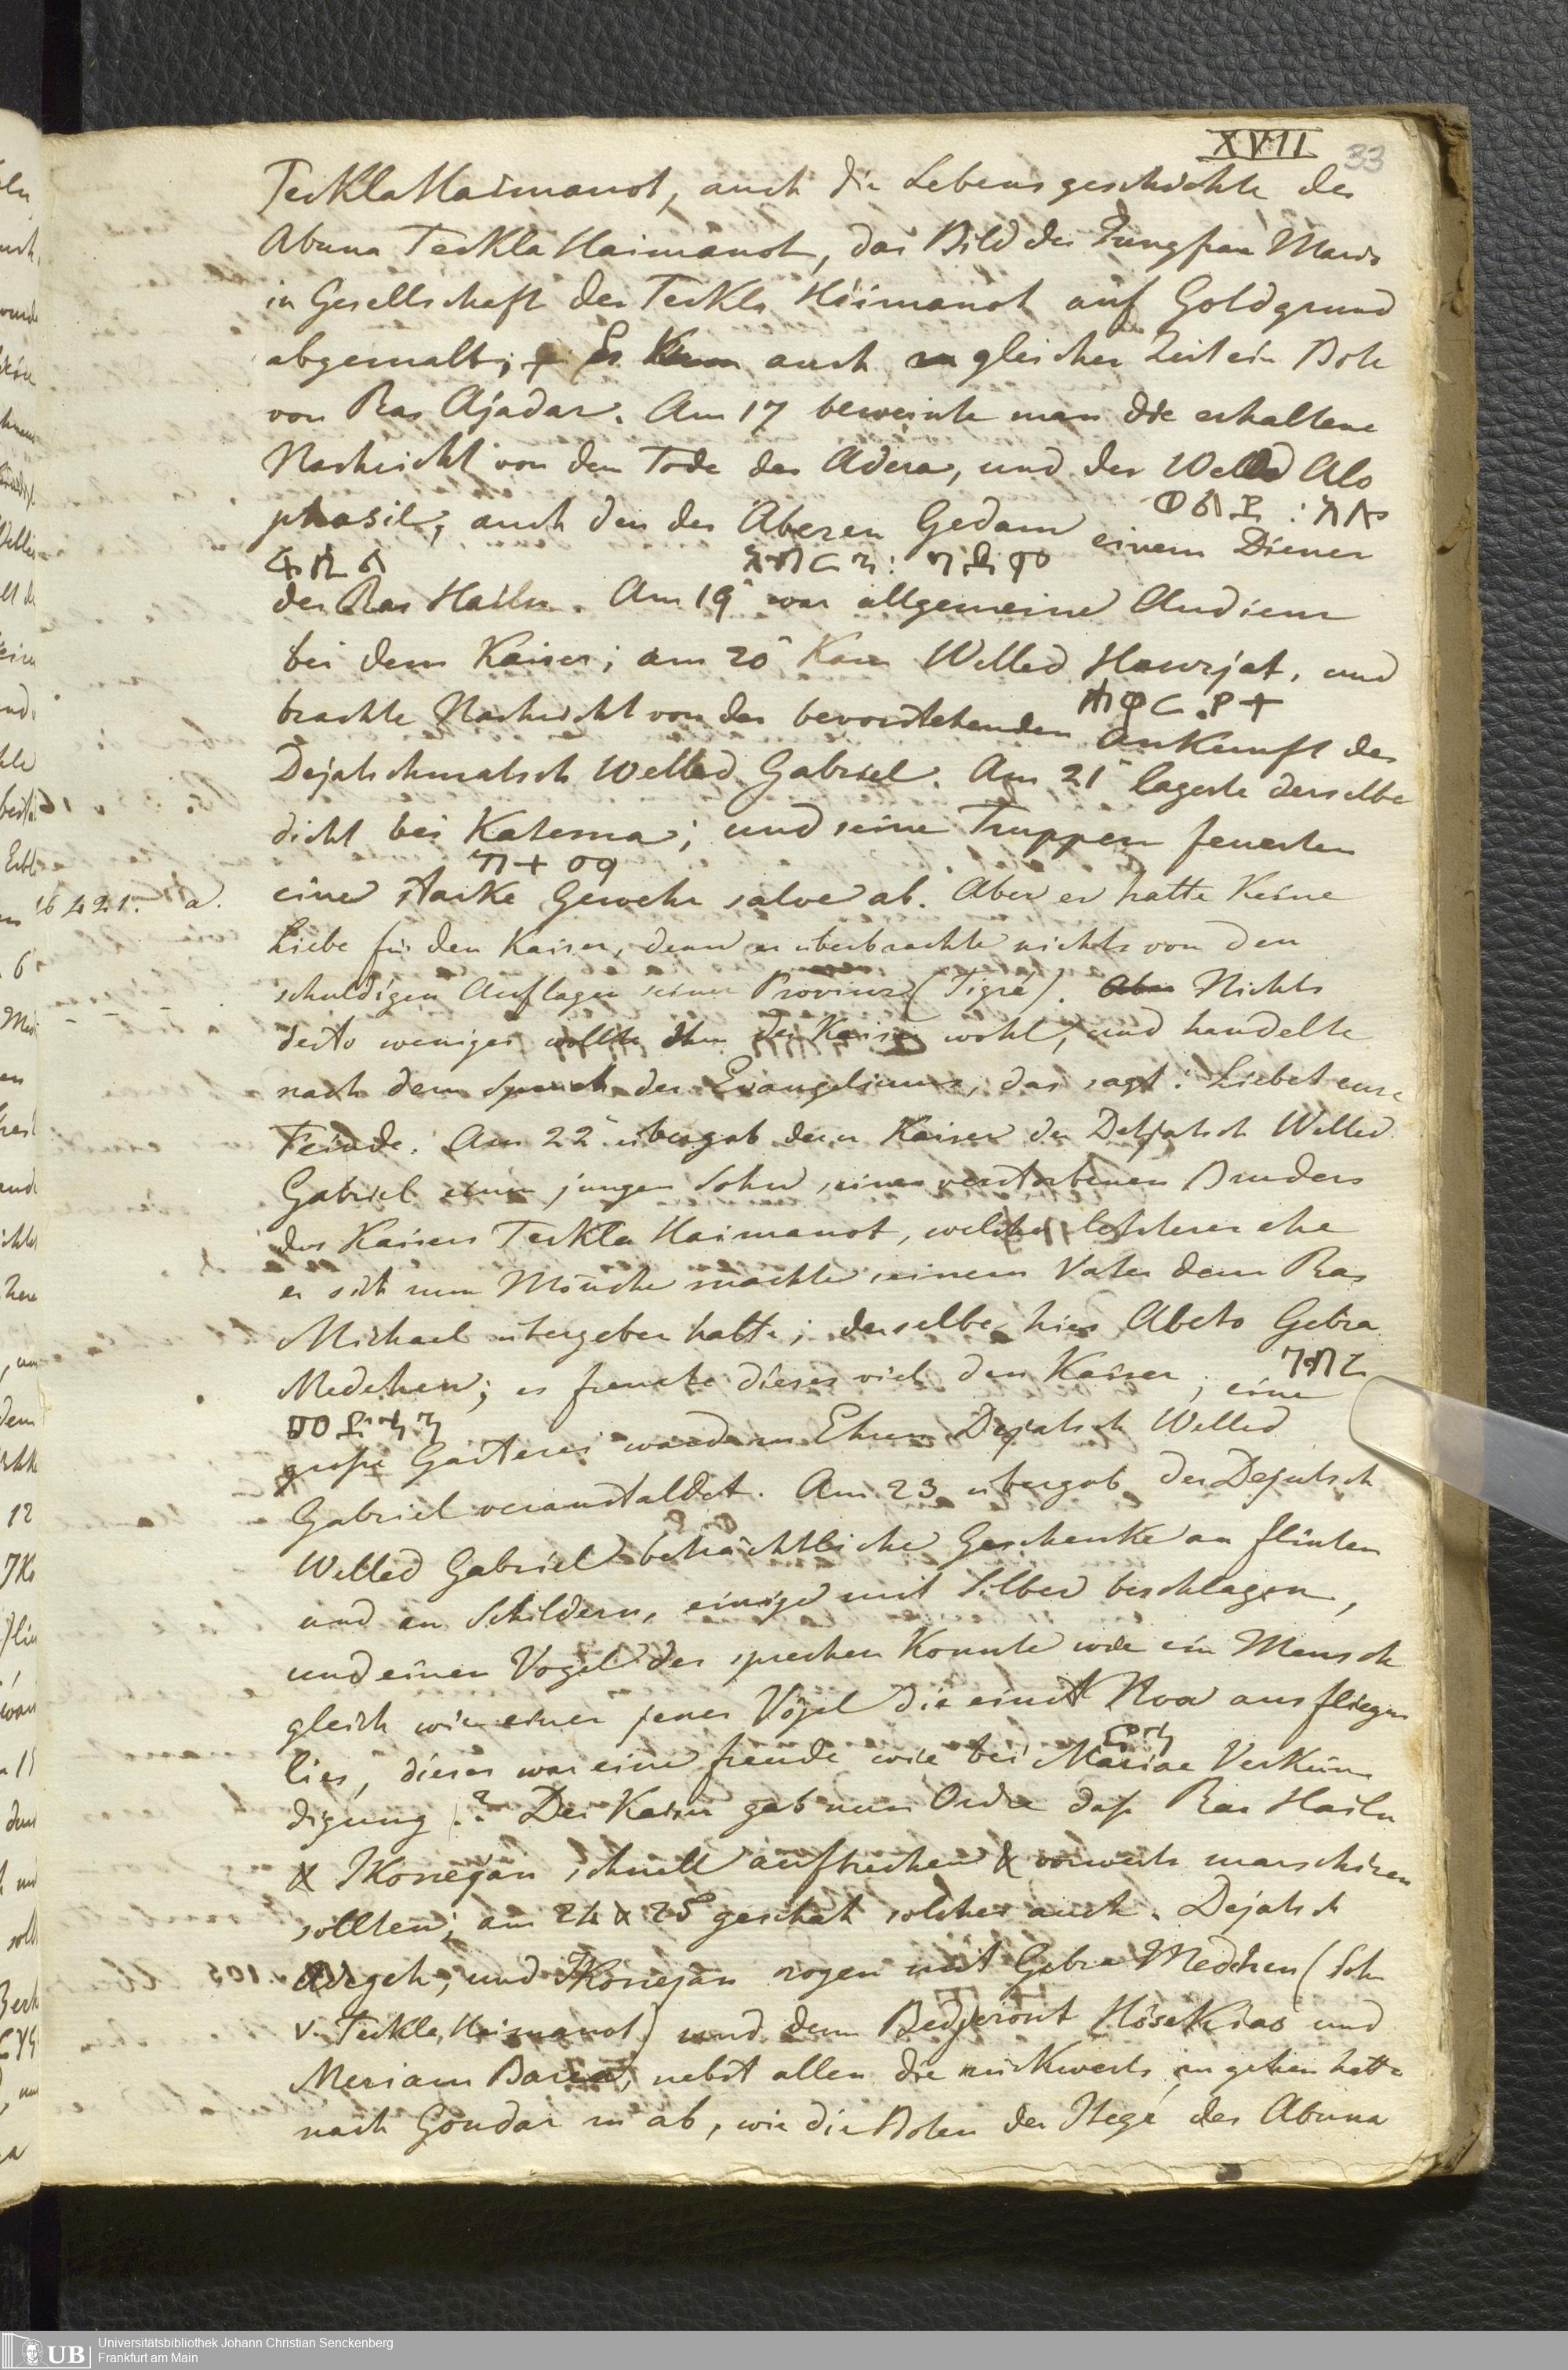 XVII 33
TecklaHaimanot, auch die Lebensgeschichte des
Abuna Teckla Haimanot, das Bild der Jungfrau Maria
in Gesellschaft des Teckla Haimanot auf Goldgrund
abgemalt; Es kam auch zu gleicher Zeit ein Bote
von Ras Ajadar. Am 17 beweinte man die erhaltene
Nachricht von dem Tode des Adera, und des Welled Alo
phasil, auch den des Aberen Gedam einem Diener
des Ras Hailu. Am 19 war allgemeine Audienz
bei dem Kaiser; am 20 kam Welled Hawrjat, und
ሐዋርያት
brachte Nachricht von der bevorstehenden Ankunft des
Dejatschmatsch Welled Gabriel. Am 21 lagerte derselbe
dicht bei Katema; und seine Truppen feuerten
ከተማ
eine starke Gewehr salve ab. Aber er hatte keine
Liebe für den Kaiser, denn er überbrachte nichts von den
schuldigen Auflagen seiner Provinz (Tigré). Aber Nichts
desto weniger wollte ihm der Kaiser wohl, und handelte
nach dem Spruch des Evangeliums, das sagt: Liebet eure
Feinde. Am 22 übergab dem Kaiser der Dejatsch Welled
Gabriel einen jungen Sohn seines verstorbenen Bruders
des Kaisers Teckla Haimanot, welchen letzterer ehe
er sich zum Mönche machte seinem Vater dem Ras
Michael übergeben hatte; derselbe hies Abeto Gebra
ገብረ
Medehen; es freute dieses viel den Kaiser; eine
መድኅን
große Gasterei ward zu Ehren Dejatsch Welled
Gabriel veranstaldet. Am 23 übergab der Dejatsch
Welled Gabriel beträchtliche Geschenke an flinten
und an Schildern, einige mit Silber beschlagen,
und einen Vogel der sprechen konnte wie ein Mensch
gleich wie einer jener Vögel die einst Noa ausfliegen
lies, dieses war eine freude wie bei Mariae Verkün
digung.? Der Kaiser gab nun Ordre daß Ras Hailu
& Ikonejan schnell aufbrechen & vorwerts marschiren
sollten; am 24 & 25 geschah solches auch. Dejatsch
Adegeh, und Ikonejan zogen mit Gebra Medehen (Sohn
v. Teckla Haimanot) und dem Bedjeront Hösekias und
Meriam Barea, nebst allen die rückwerts zu gehen hatte
nach Gondar zu ab, wie die Boten der Itegé des Abuna